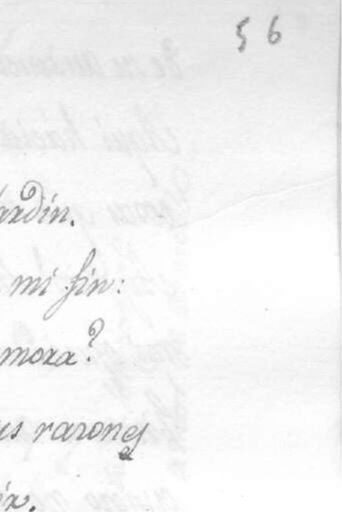 56
ardin.
mi fin:
mora?
us razones
ir.